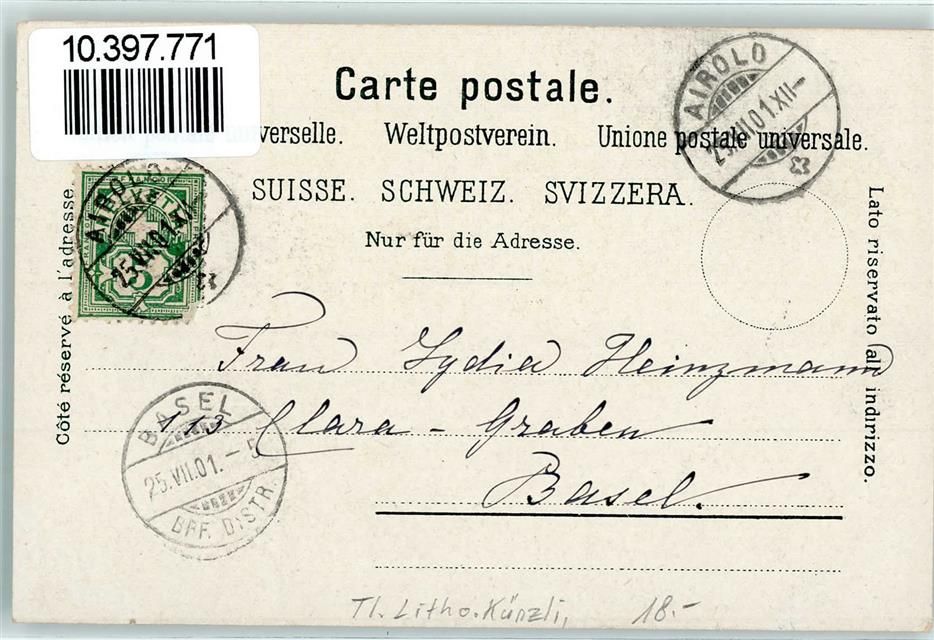 10.397.771
Carte postale.
verselle. Weltpostverein. Unione postale universale.
SUISSE. SCHWEIZ. SVIZZERA.
Nur für die Adresse.
Côté réservé à l'adresse.
Lato riservato all indirizzo.
AIROLO
25.VII.01.XII-
AIROLO
25.VII.01.XII
5
Frau Lydia Heinzmann
113 Clara-Graben
Basel.
BASEL
25.VII.01.-
BRF. DISTR.
Tl. Litho. Künzli, 18.-